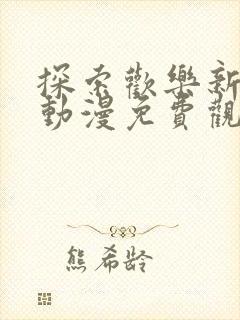 探索歡樂新
動漫免費觀
熊希齡